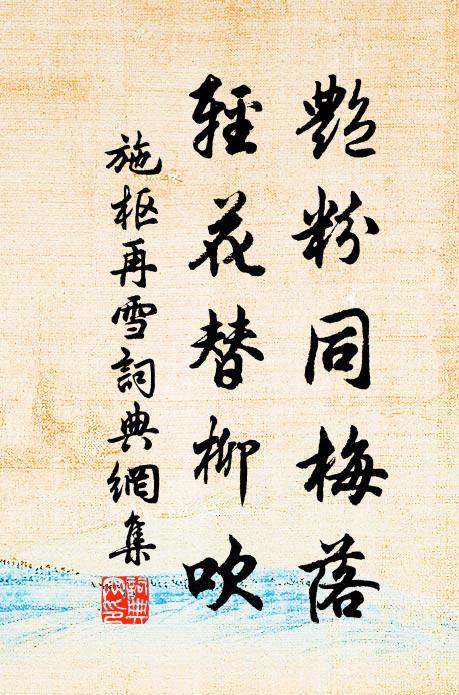 艷粉同梅落
輕花替柳吹
施枢再雪詞典網集